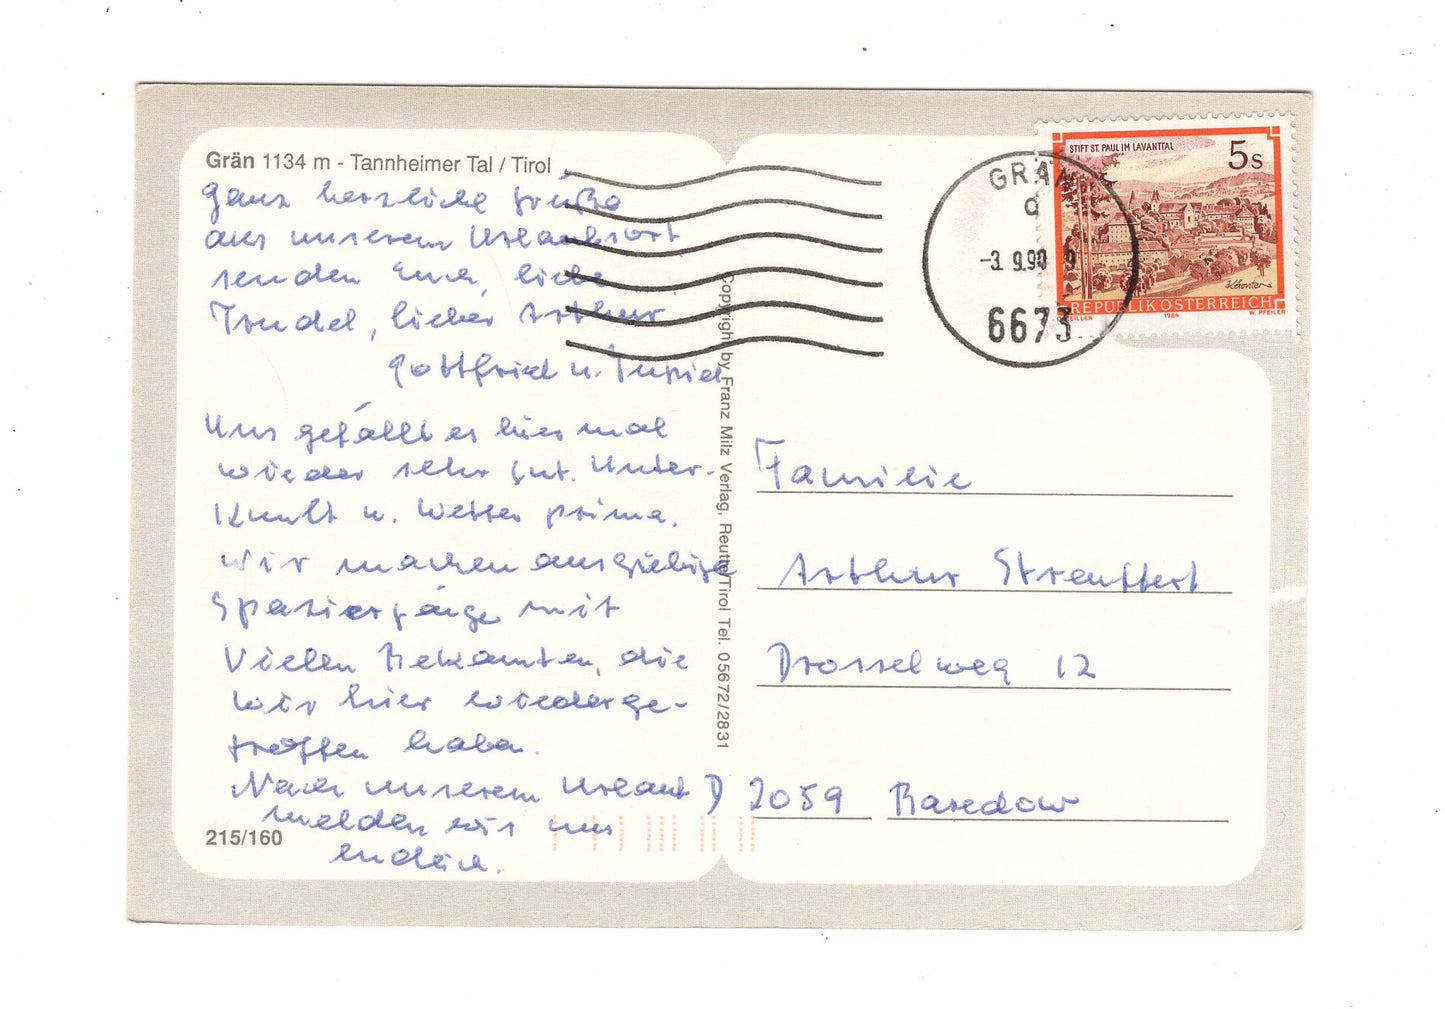 Grän 1134 m - Tannheimer Tal / Tirol
Ganz herzliche Grüße
aus unserem Urlaubsort
senden Euch, liebe
Trudel, lieber Arthur
Gottfried u.
Uns gefällt es hier mal
wieder sehr gut. Unter-
kunft u. Wetter prima.
Wir machen ausgiebige
Spaziergänge mit
vielen Bekannten, die
wir hier wiederge-
troffen haben.
Nach unserem Urlaub
melden wir uns
endlich.
215/160
Copyright by Franz Milz Verlag, Reutte/Tirol Tel. 05672/2831
GRÄN
d
-3. 9.90 9
6673
STIFT ST. PAUL IM LAVANTTAL
5s
REPUBLIK ÖSTERREICH
1984
W. PFEILER
Familie
Arthur Streuffert
Drosselweg 12
D 2059 Basedow